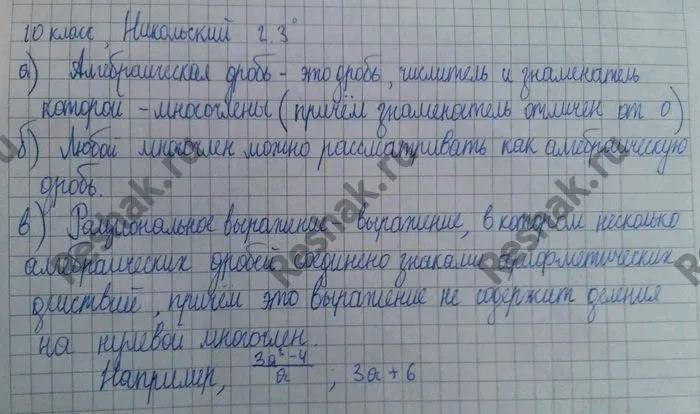 10 класс, Никольский 2.3°
а) Алгебраическая дробь - это дробь, числитель и знаменатель
которой - многочлены (причём знаменатель отличен от 0)
б) Любой многочлен можно рассматривать как алгебраическую
дробь.
в) Рациональное выражение выражение, в котором несколько
алгебраических дробей соединено знаками арифметических
действий, причём это выражение не содержит деления
на нулевой многочлен.
Например, (3a²-4)/a ; 3a+6
Resnak.ru
Resnak.ru
Resnak.ru